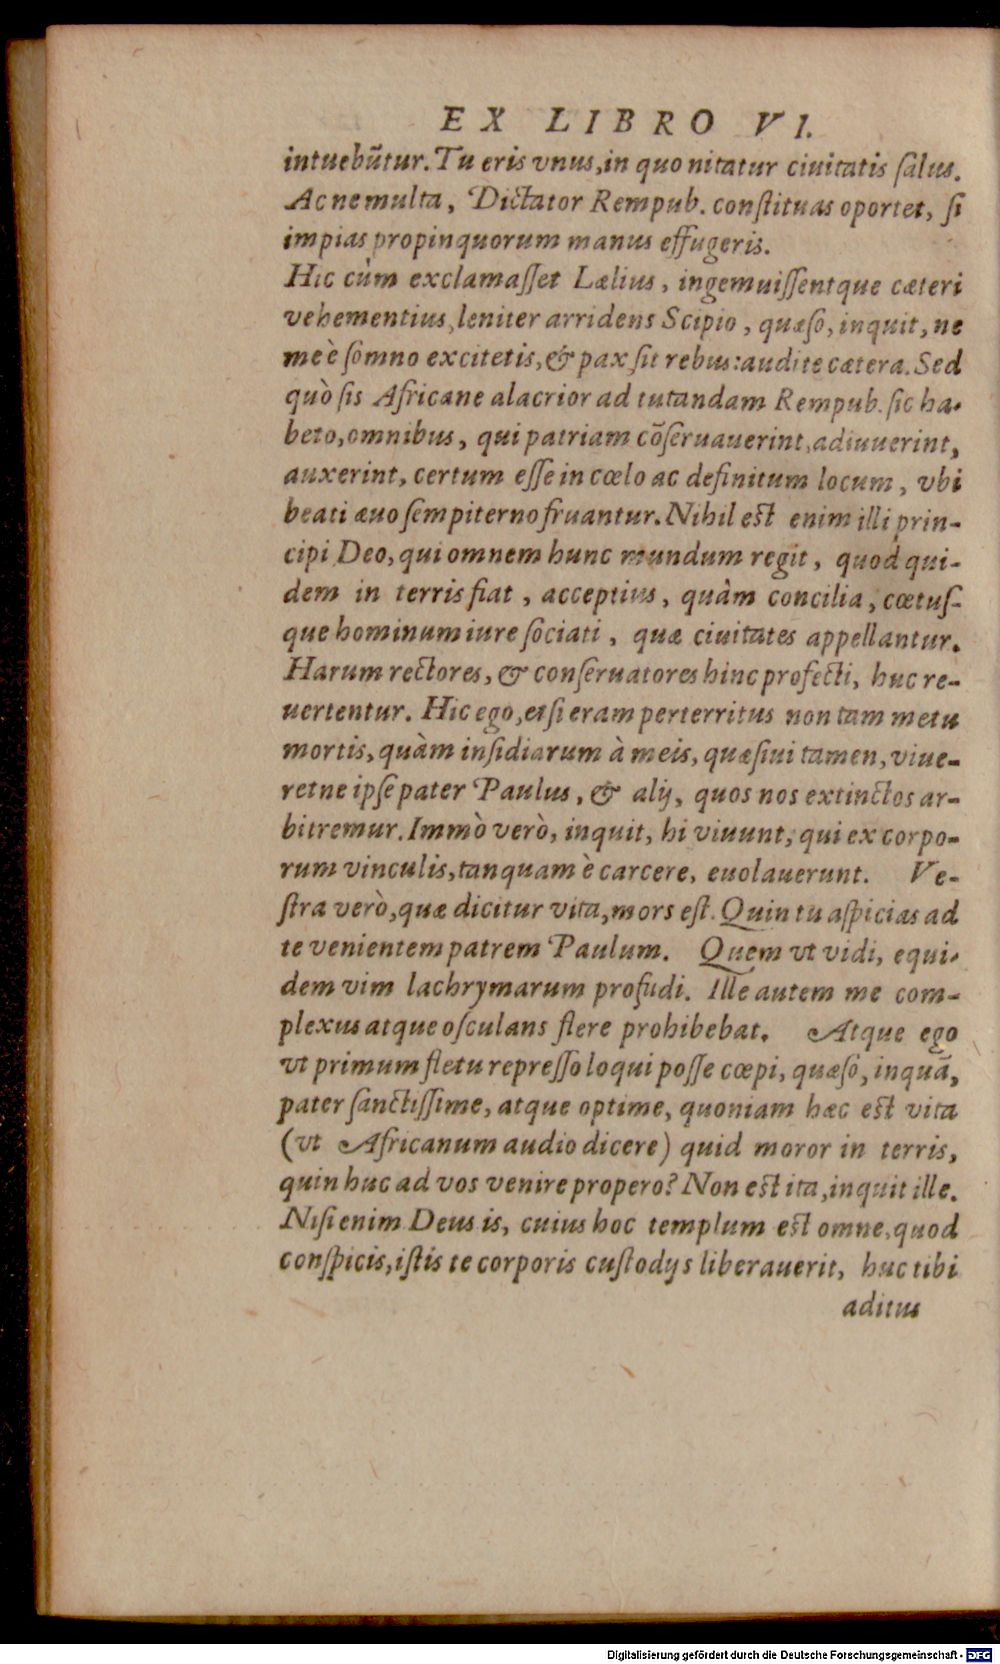 EX LIBRO VI.
intuebũtur. Tu eris vnus, in quo nitatur ciuitatis ſalus.
Ac ne multa, Dictator Rempub. conſtituas oportet, ſi
impias propinquorum manus effugeris.
Hic cùm exclamaſſet Lælius, ingemuiſſentque cæteri
vehementius, leniter arridens Scipio, quæſo, inquit, ne
me è ſomno excitetis, & pax ſit rebus: audite cætera. Sed
quò ſis Africane alacrior ad tutandam Rempub. ſic ha-
beto, omnibus, qui patriam cõſeruauerint, adiuuerint,
auxerint, certum eſſe in cœlo ac definitum locum, vbi
beati æuo ſempiterno fruantur. Nihil est enim illi prin-
cipi Deo, qui omnem hunc mundum regit, quod qui-
dem in terris fiat, acceptius, quàm concilia, cœtuſ-
que hominum iure ſociati, quæ ciuitates appellantur.
Harum rectores, & conſeruatores hinc profecti, huc re-
uertentur. Hic ego, etſi eram perterritus non tam metu
mortis, quàm inſidiarum à meis, quæſiui tamen, viue-
retne ipſe pater Paulus, & alij, quos nos extinctos ar-
bitremur. Immò verò, inquit, hi viuunt, qui ex corpo-
rum vinculis, tanquam è carcere, euolauerunt. Ve-
ſtra verò, quæ dicitur vita, mors eſt. Quin tu aſpicias ad
te venientem patrem Paulum. Quem vt vidi, equi-
dem vim lachrymarum profudi. Ille autem me com-
plexus atque oſculans flere prohibebat. Atque ego
vt primum fletu repreſſo loqui poſſe cœpi, quæſo, inquã,
pater ſanctiſſime, atque optime, quoniam hæc est vita
(vt Africanum audio dicere) quid moror in terris,
quin huc ad vos venire propero? Non est ita, inquit ille.
Niſi enim Deus is, cuius hoc templum est omne, quod
conſpicis, iſtis te corporis cuſtodijs liberauerit, huc tibi
aditus
Digitalisierung gefördert durch die Deutsche Forschungsgemeinschaft - DFG